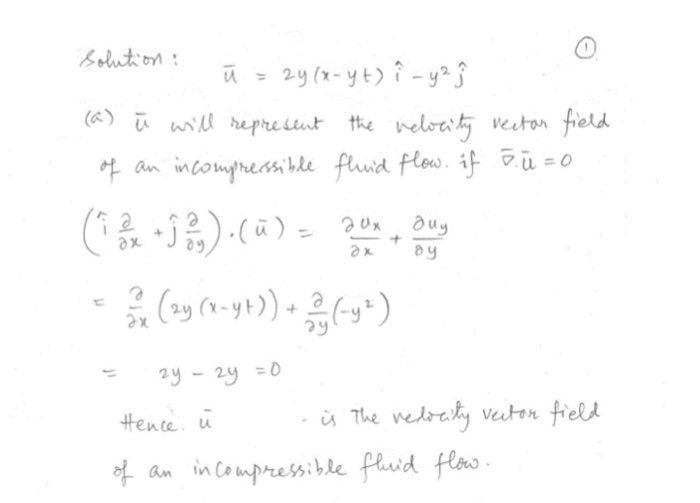 Solution : ①
ū = 2y(x-yt) î - y² ĵ
(a) ū will represent the velocity vector field
of an incompressible fluid flow. if ∇̄.ū = 0
(î ∂/∂x + ĵ ∂/∂y) . (ū) = ∂ux/∂x + ∂uy/∂y
= ∂/∂x (2y(x-yt)) + ∂/∂y (-y²)
= 2y - 2y = 0
Hence. ū - is The velocity vector field
of an incompressible fluid flow.